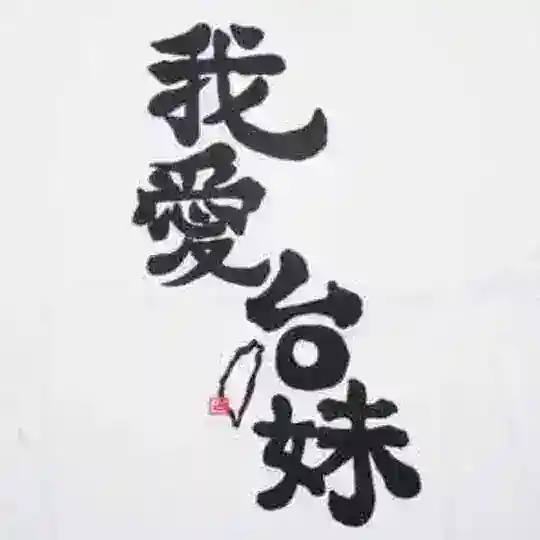 我愛
台妹